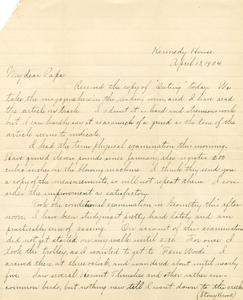 Kennedy House
April 13, 1904
My dear Papa
Received the copy of "Outing" today. We
take the magazine in the reading room, and I have read
the article on track. I admit it is hard and strenuous work
but I can hardly say it was much of a grind as the tone of the
article seems to indicate.
I had the term physical examination this morning.
Have gained eleven pounds since January, also register 200
cubic inches on the blowing machine. I think they send you
a copy of the measurements, so will not repeat them. I con-
sider the improvement is satisfactory.
Took the conditional examination in Geometry this after-
noon. I have been studying it pretty hard lately and am
practically sure of passing. On account of this examination
did not get started on my walk until 3.30. For once I
took the trolley, as I wanted to get to
around there at three o'clock, and
five. Saw several Hermit Thrushes and other rather un-
common birds, but nothing new till I went down to the creek
(Stony Brook)